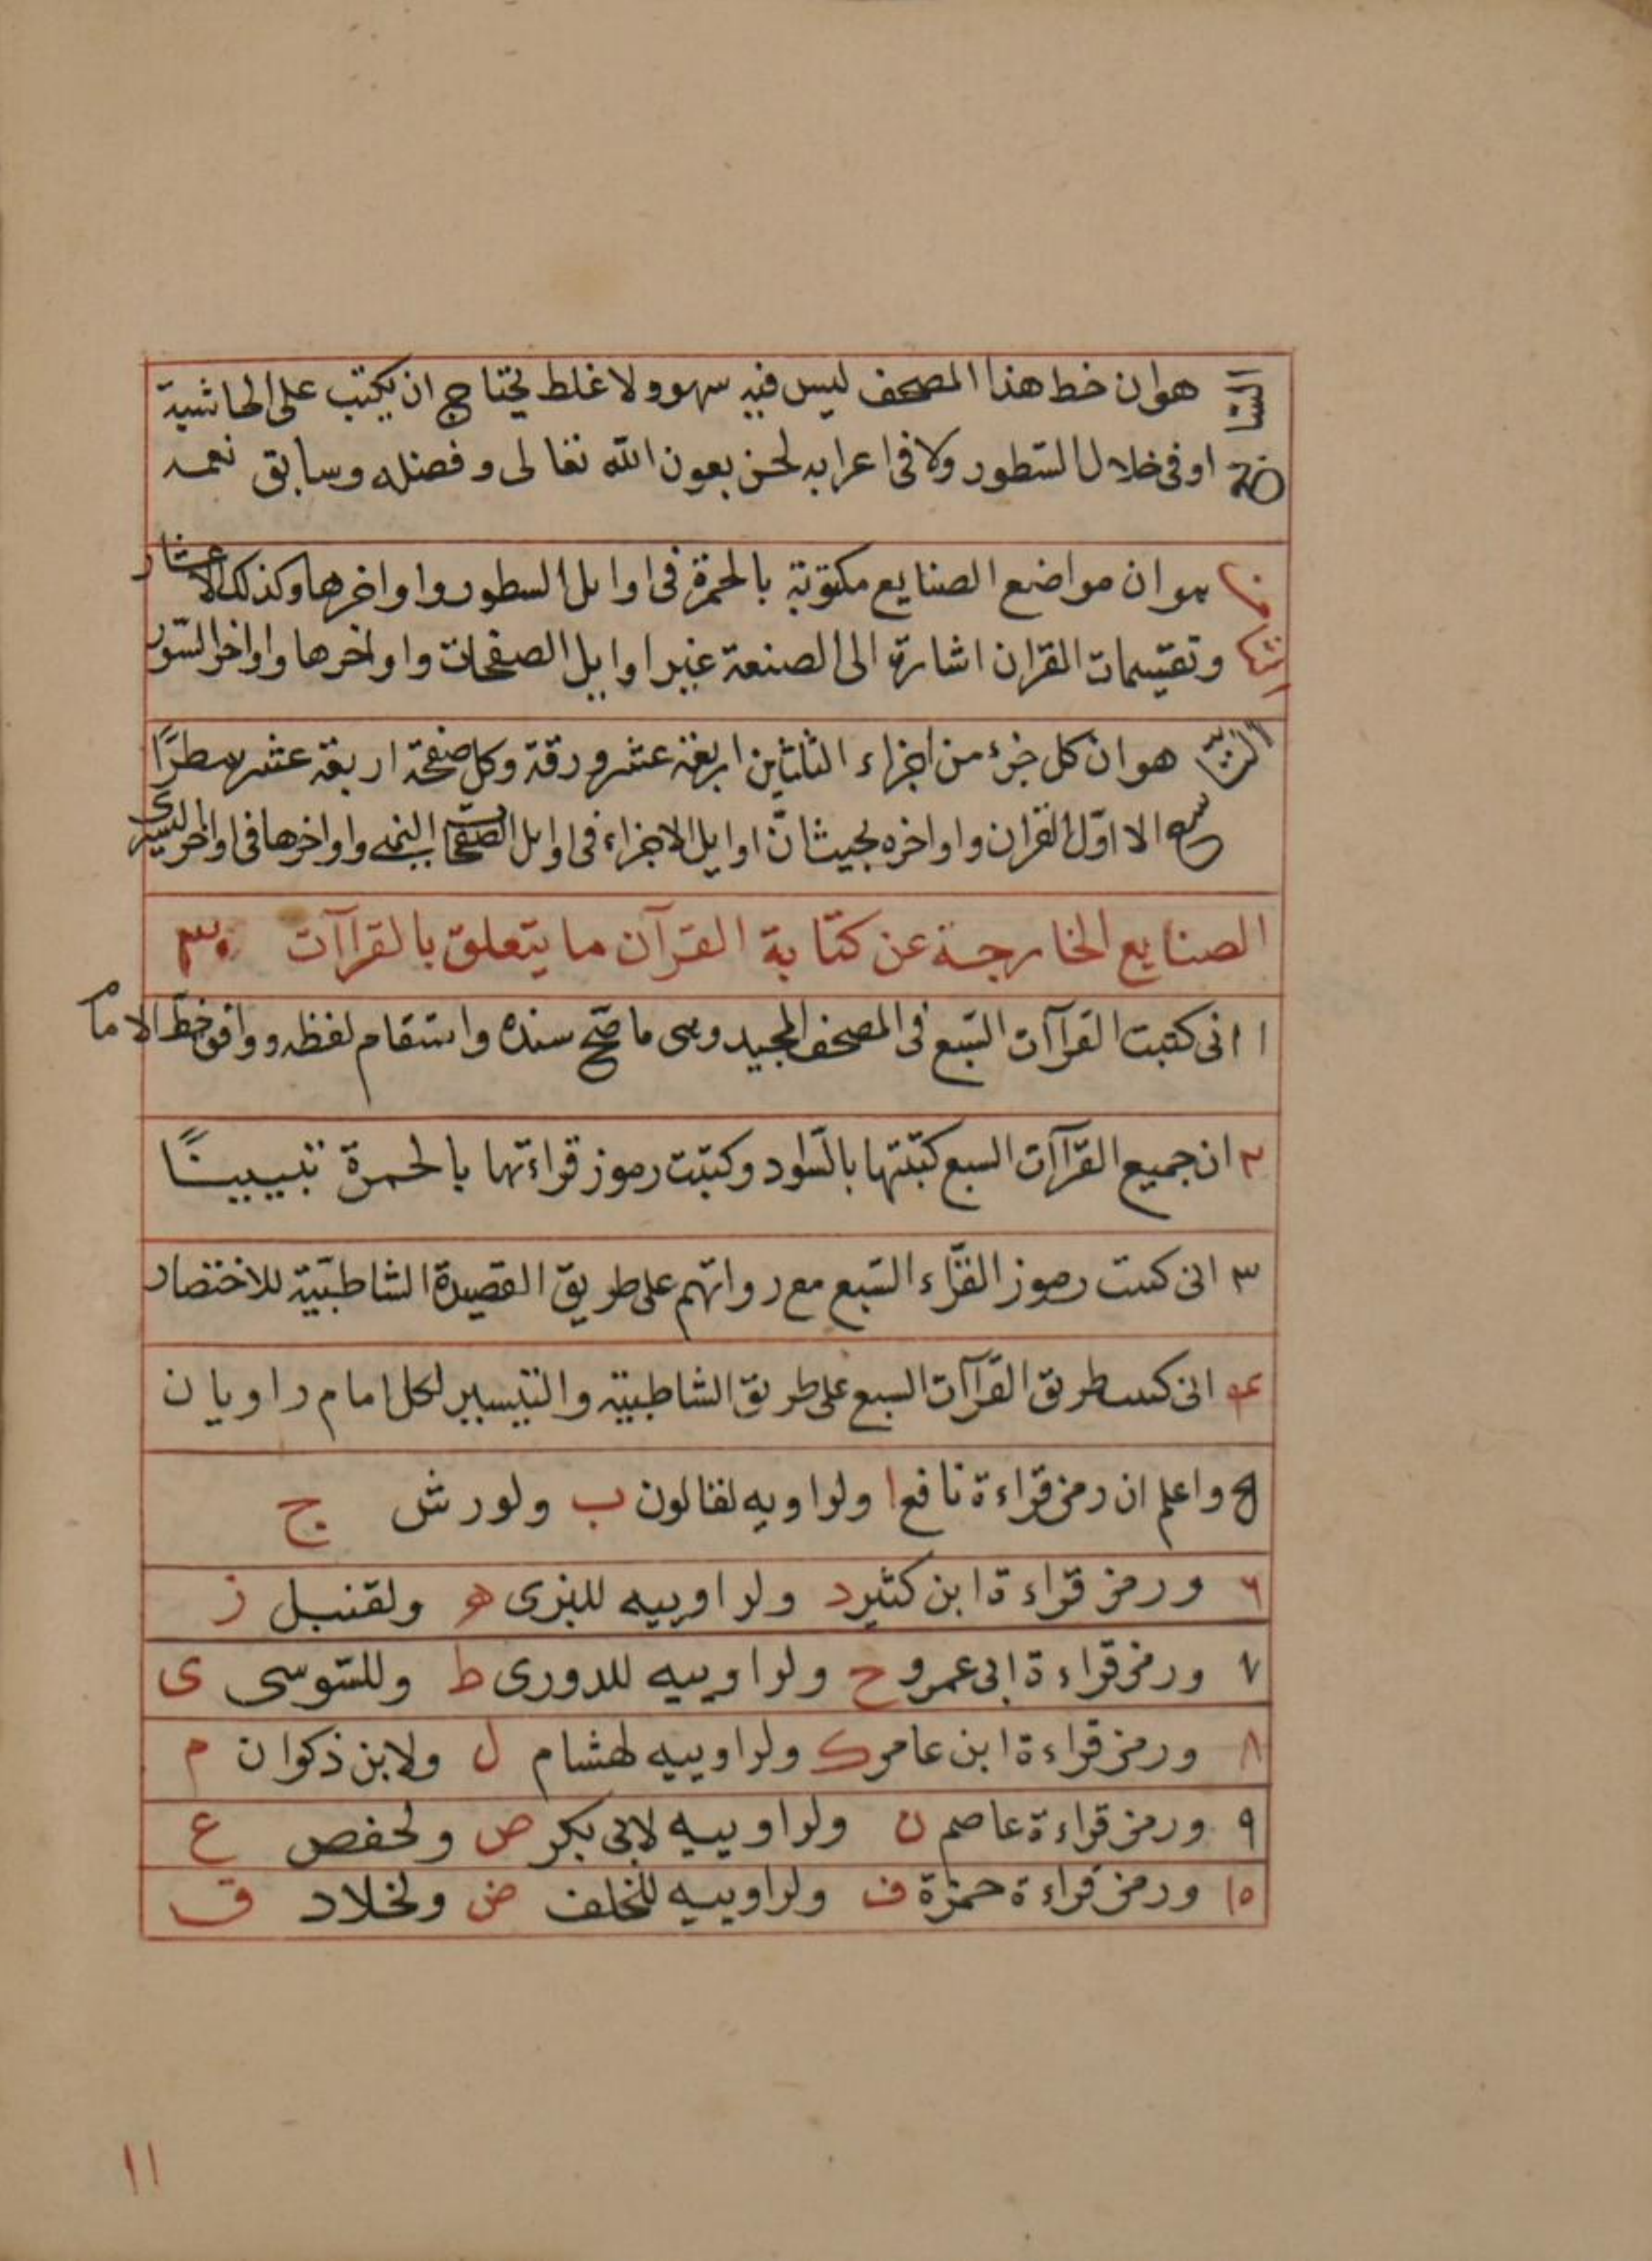 هو ان خط هذا المصحف ليس فيه سهو ولا غلط يحتاج ان يكتب على الحاشية
او فى خلال السّطور ولا فى اعرابه لحن بعون الله تعالى وفضله وسابق نعمه
الثامن هو ان مواضع الصنايع مكتوبة بالحمرة فى اوايل السطور واواخرها وكذلك الاعشار
وتقسيمات القران اشارة الى الصنعة غير اوايل الصفحات واواخرها واواخر السّور
التاسع هو ان كل جزء من اجزاء الثلثين اربعة عشر ورقة وكل صفحة اربعة عشر سطرًا
الا اوّل القران واواخره بحيث انّ اوايل الاجزاء فى اوايل الصّفحات اليمنى واواخرها فى اواخر اليسرى
الصنايع الخارجة عن كتابة القرآن ما يتعلق بالقراآت ٣٠
١ انى كتبت القراآت السّبع فى المصحف المجيد وهى ما صحّ سنده واستقام لفظه ووافق خطّ الامام
٢ ان جميع القراآت السبع كتبتها بالسّواد وكتبت رموز قراءتها بالحمرة تبيينًا
٣ انى كتبت رموز القرّاء السّبع مع رواتهم على طريق القصيدة الشاطبيّة للاختصار
٤ انى كتبت طريق القرآات السبع على طريق الشاطبية والتيسير لكل امام راويان
٥ واعلم ان رمز قراءة نافع ا ولراويه لقالون ب ولورش ج
٦ ورمز قراءة ابن كثير د ولراوييه للبزى ه ولقنبل ز
٧ ورمز قراءة ابى عمرو ح ولراوييه للدورى ط وللسّوسى ى
٨ ورمز قراءة ابن عامر ك ولراوييه لهشام ل ولابن ذكوان م
٩ ورمز قراءة عاصم ن ولراوييه لابى بكر ص ولحفص ع
١٥ ورمز قراءة حمزة ف ولراوييه للخلف ض ولخلاد ق
١١